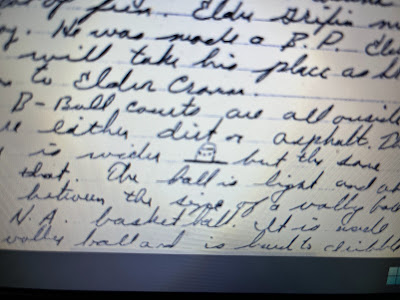 of fun. Elder Griffin
He was made a B.P.
will take his place as
to Elder Crown.
B-Ball courts are all outside
either dirt or asphalt.
is wider but the same
that. The ball is light and
between the size of a volley ball
N.A. basketball. It is made
volley ball and is hard to dribble